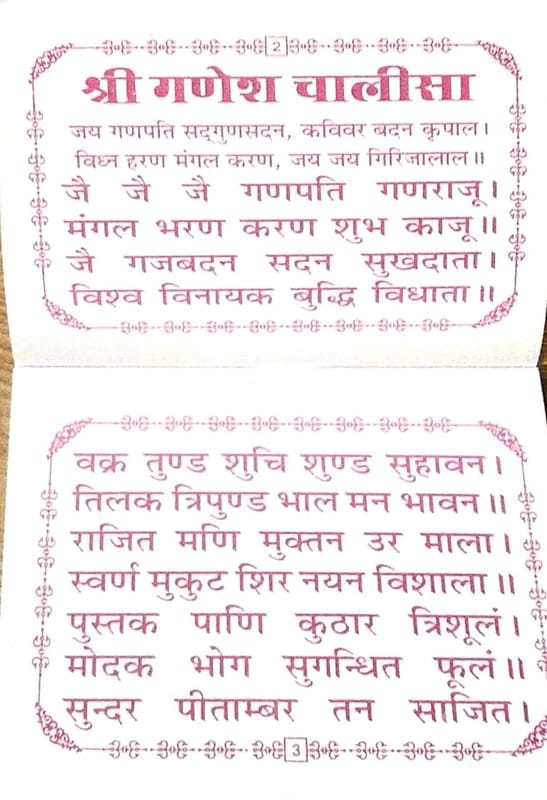 2
श्री गणेश चालीसा
जय गणपति सद्गुणसदन, कविवर बदन कृपाल।
विध्न हरण मंगल करण, जय जय गिरिजालाल॥
जै जै जै गणपति गणराजू।
मंगल भरण करण शुभ काजू॥
जै गजबदन सदन सुखदाता।
विश्व विनायक बुद्धि विधाता॥
वक्र तुण्ड शुचि शुण्ड सुहावन।
तिलक त्रिपुण्ड भाल मन भावन॥
राजित मणि मुक्तन उर माला।
स्वर्ण मुकुट शिर नयन विशाला॥
पुस्तक पाणि कुठार त्रिशूलं।
मोदक भोग सुगन्धित फूलं॥
सुन्दर पीताम्बर तन साजित।
3